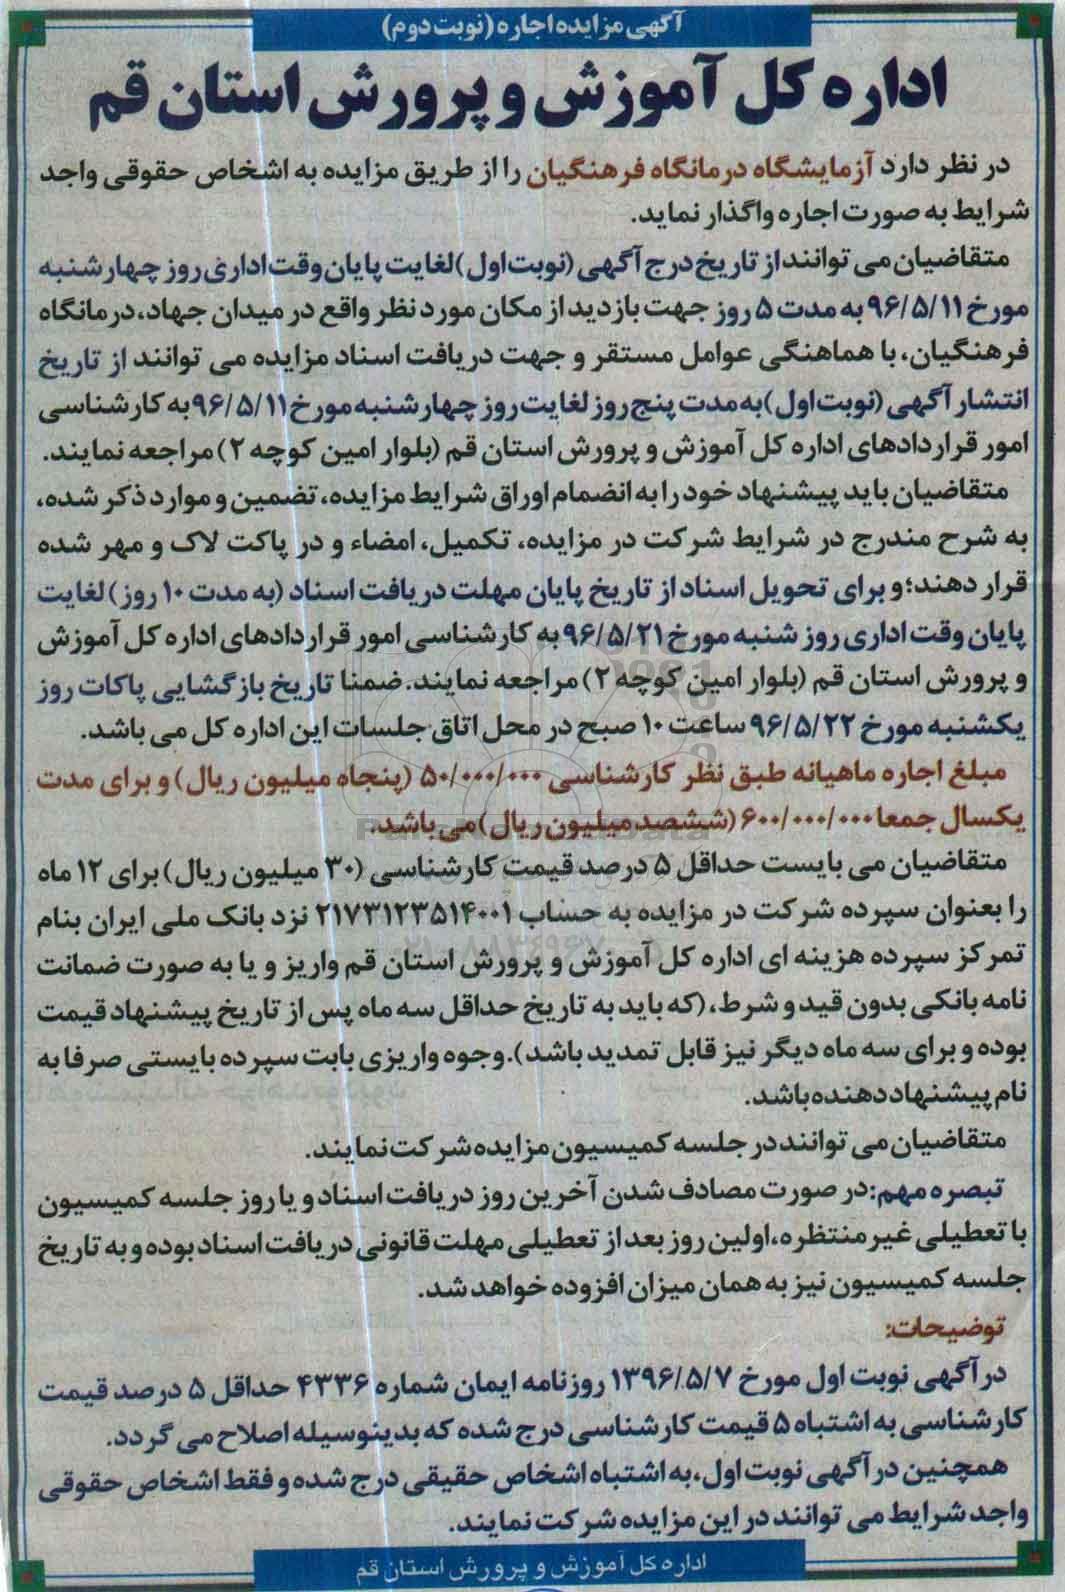 آگهی مزایده اجاره (نوبت دوم)
اداره کل آموزش و پرورش استان قم
در نظر دارد آزمایشگاه درمانگاه فرهنگیان را از طریق مزایده به اشخاص حقوقی واجد
شرایط به صورت اجاره واگذار نماید.
متقاضیان می توانند از تاریخ درج آگهی (نوبت اول) لغایت پایان وقت اداری روز چهارشنبه
مورخ ۹۶/۵/۱۱ به مدت ۵ روز جهت بازدید از مکان مورد نظر واقع در میدان جهاد، درمانگاه
فرهنگیان، با هماهنگی عوامل مستقر و جهت دریافت اسناد مزایده می توانند از تاریخ
انتشار آگهی (نوبت اول) به مدت پنج روز لغایت روز چهارشنبه مورخ ۹۶/۵/۱۱ به کارشناسی
امور قراردادهای اداره کل آموزش و پرورش استان قم (بلوار امین کوچه ۲) مراجعه نمایند.
متقاضیان باید پیشنهاد خود را به انضمام اوراق شرایط مزایده، تضمین و موارد ذکر شده،
به شرح مندرج در شرایط شرکت در مزایده، تکمیل، امضاء و در پاکت لاک و مهر شده
قرار دهند؛ و برای تحویل اسناد از تاریخ پایان مهلت دریافت اسناد (به مدت ۱۰ روز) لغایت
پایان وقت اداری روز شنبه مورخ ۹۶/۵/۲۱ به کارشناسی امور قراردادهای اداره کل آموزش
و پرورش استان قم (بلوار امین کوچه ۲) مراجعه نمایند. ضمنا تاریخ بازگشایی پاکات روز
یکشنبه مورخ ۹۶/۵/۲۲ ساعت ۱۰ صبح در محل اتاق جلسات این اداره کل می باشد.
مبلغ اجاره ماهیانه طبق نظر کارشناسی ۵۰/۰۰۰/۰۰۰ (پنجاه میلیون ریال) و برای مدت
یکسال جمعا ۶۰۰/۰۰۰/۰۰۰ (ششصد میلیون ریال) می باشد.
متقاضیان می بایست حداقل ۵ درصد قیمت کارشناسی (۳۰ میلیون ریال) برای ۱۲ ماه
را بعنوان سپرده شرکت در مزایده به حساب ۲۱۷۳۱۲۳۵۱۴۰۰۱ نزد بانک ملی ایران بنام
تمرکز سپرده هزینه ای اداره کل آموزش و پرورش استان قم واریز و یا به صورت ضمانت
نامه بانکی بدون قید و شرط، (که باید به تاریخ حداقل سه ماه پس از تاریخ پیشنهاد قیمت
بوده و برای سه ماه دیگر نیز قابل تمدید باشد). وجوه واریزی بابت سپرده بایستی صرفا به
نام پیشنهاد دهنده باشد.
متقاضیان می توانند در جلسه کمیسیون مزایده شرکت نمایند.
تبصره مهم: در صورت مصادف شدن آخرین روز دریافت اسناد و یا روز جلسه کمیسیون
با تعطیلی غیر منتظره، اولین روز بعد از تعطیلی مهلت قانونی دریافت اسناد بوده و به تاریخ
جلسه کمیسیون نیز به همان میزان افزوده خواهد شد.
توضیحات:
در آگهی نوبت اول مورخ ۱۳۹۶/۵/۷ روزنامه ایمان شماره ۴۳۳۶ حداقل ۵ درصد قیمت
کارشناسی به اشتباه ۵ قیمت کارشناسی درج شده که بدینوسیله اصلاح می گردد.
همچنین در آگهی نوبت اول، به اشتباه اشخاص حقیقی درج شده و فقط اشخاص حقوقی
واجد شرایط می توانند در این مزایده شرکت نمایند.
اداره کل آموزش و پرورش استان قم